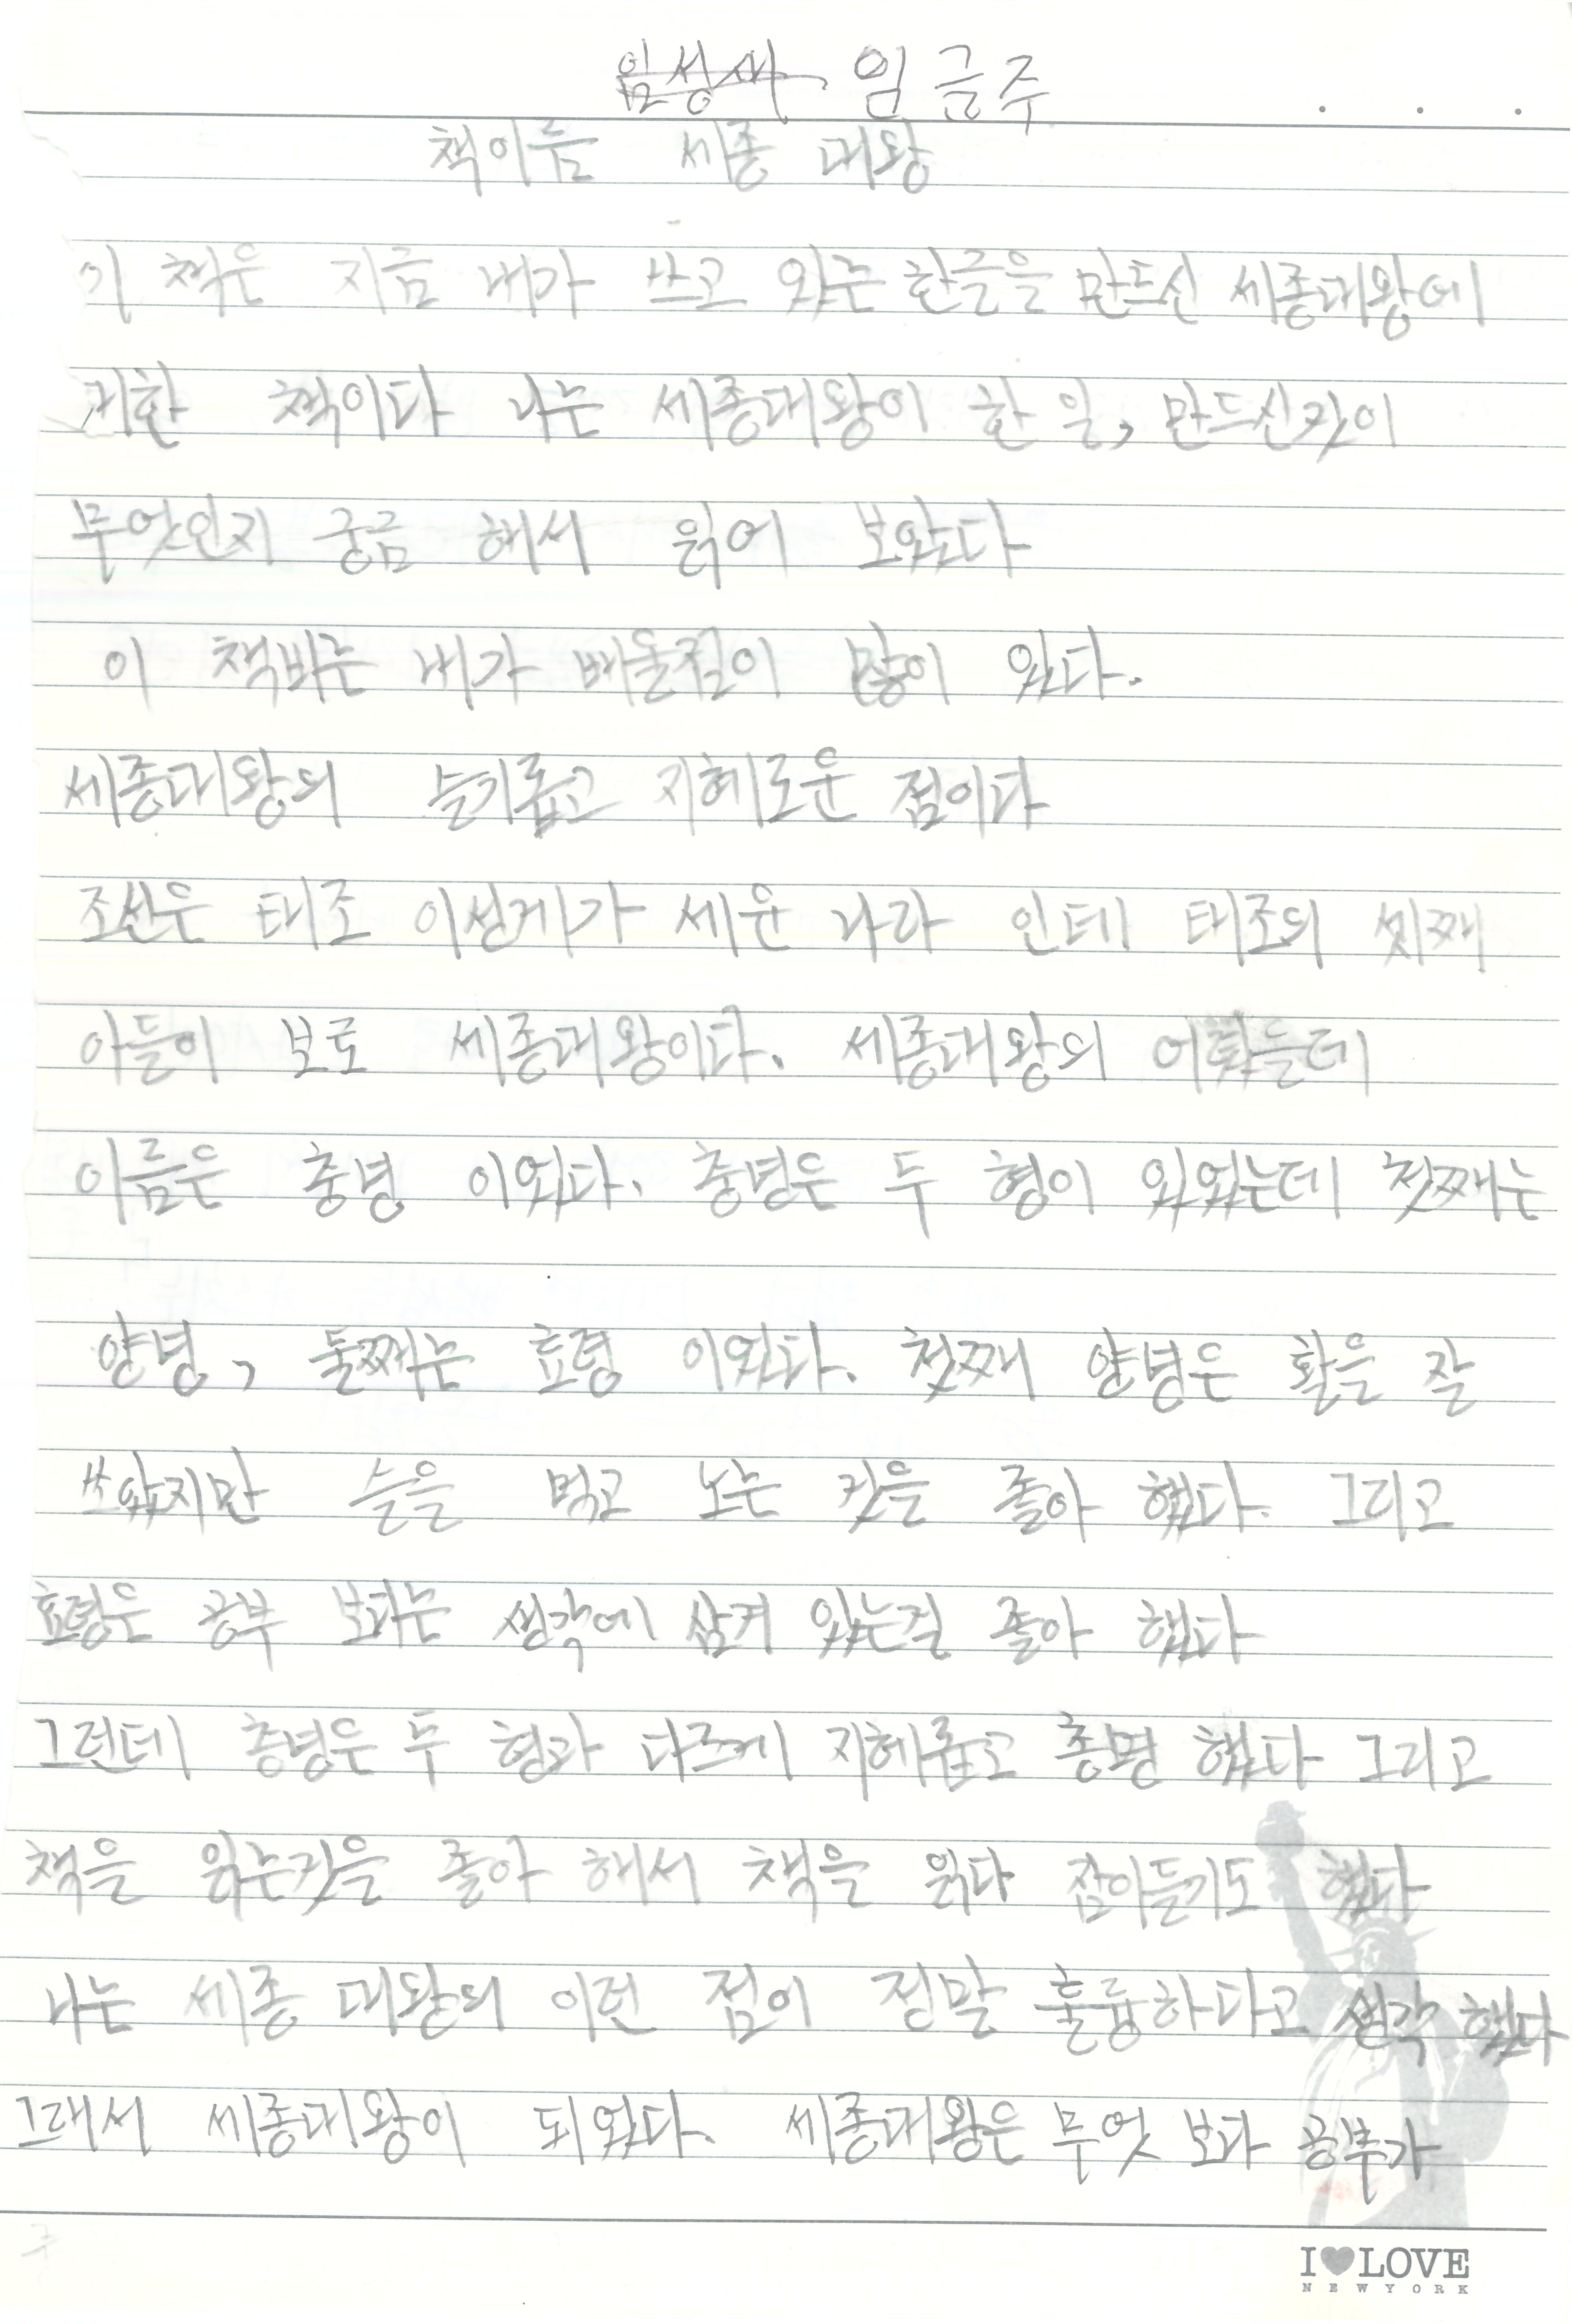 임금주
책이름 세종 대왕
이 책은 지금 내가 쓰고 있는 한글을 만드신 세종대왕에
대한 책이다 나는 세종대왕이 한 일, 만드신것이
무엇인지 궁금 해서 읽어 보았다
이 책바는 내가 배울점이 많이 있다.
세종대왕의 슬기롭고 지혜로운 점이다
조선은 태조 이성계가 세운 나라 인데 태조의 셋째
아들이 보로 세종대왕이다. 세종대왕의
이름은 충녕 이었다. 충녕은 두 형이 있었는데 첫째는
양녕, 둘째는 효령 이였다. 첫째 양녕은 활을 잘
쏘았지만 술을 먹고 노는 것을 좋아 했다. 그리고
효령은 공부 보다는 생각에 잠겨 있는걸 좋아 했다
그런데 충녕은 두 형과 다르게 지혜롭고 총명 했다 그리고
책을 읽는것을 좋아 해서 책을 읽다 잠이들기도 했다
나는 세종 대왕의 이런 점이 정말 훌륭하다고 생각 했다
그래서 세종대왕이 되었다. 세종대왕은 무엇 보다 공부가
I LOVE
NEW YORK